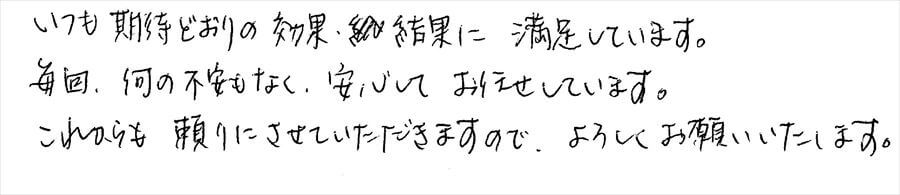 いつも期待どおりの効果・結果に 満足しています。
毎回、何の不安もなく、安心して お任せしています。
これからも 頼りにさせていただきますので、よろしくお願いいたします。